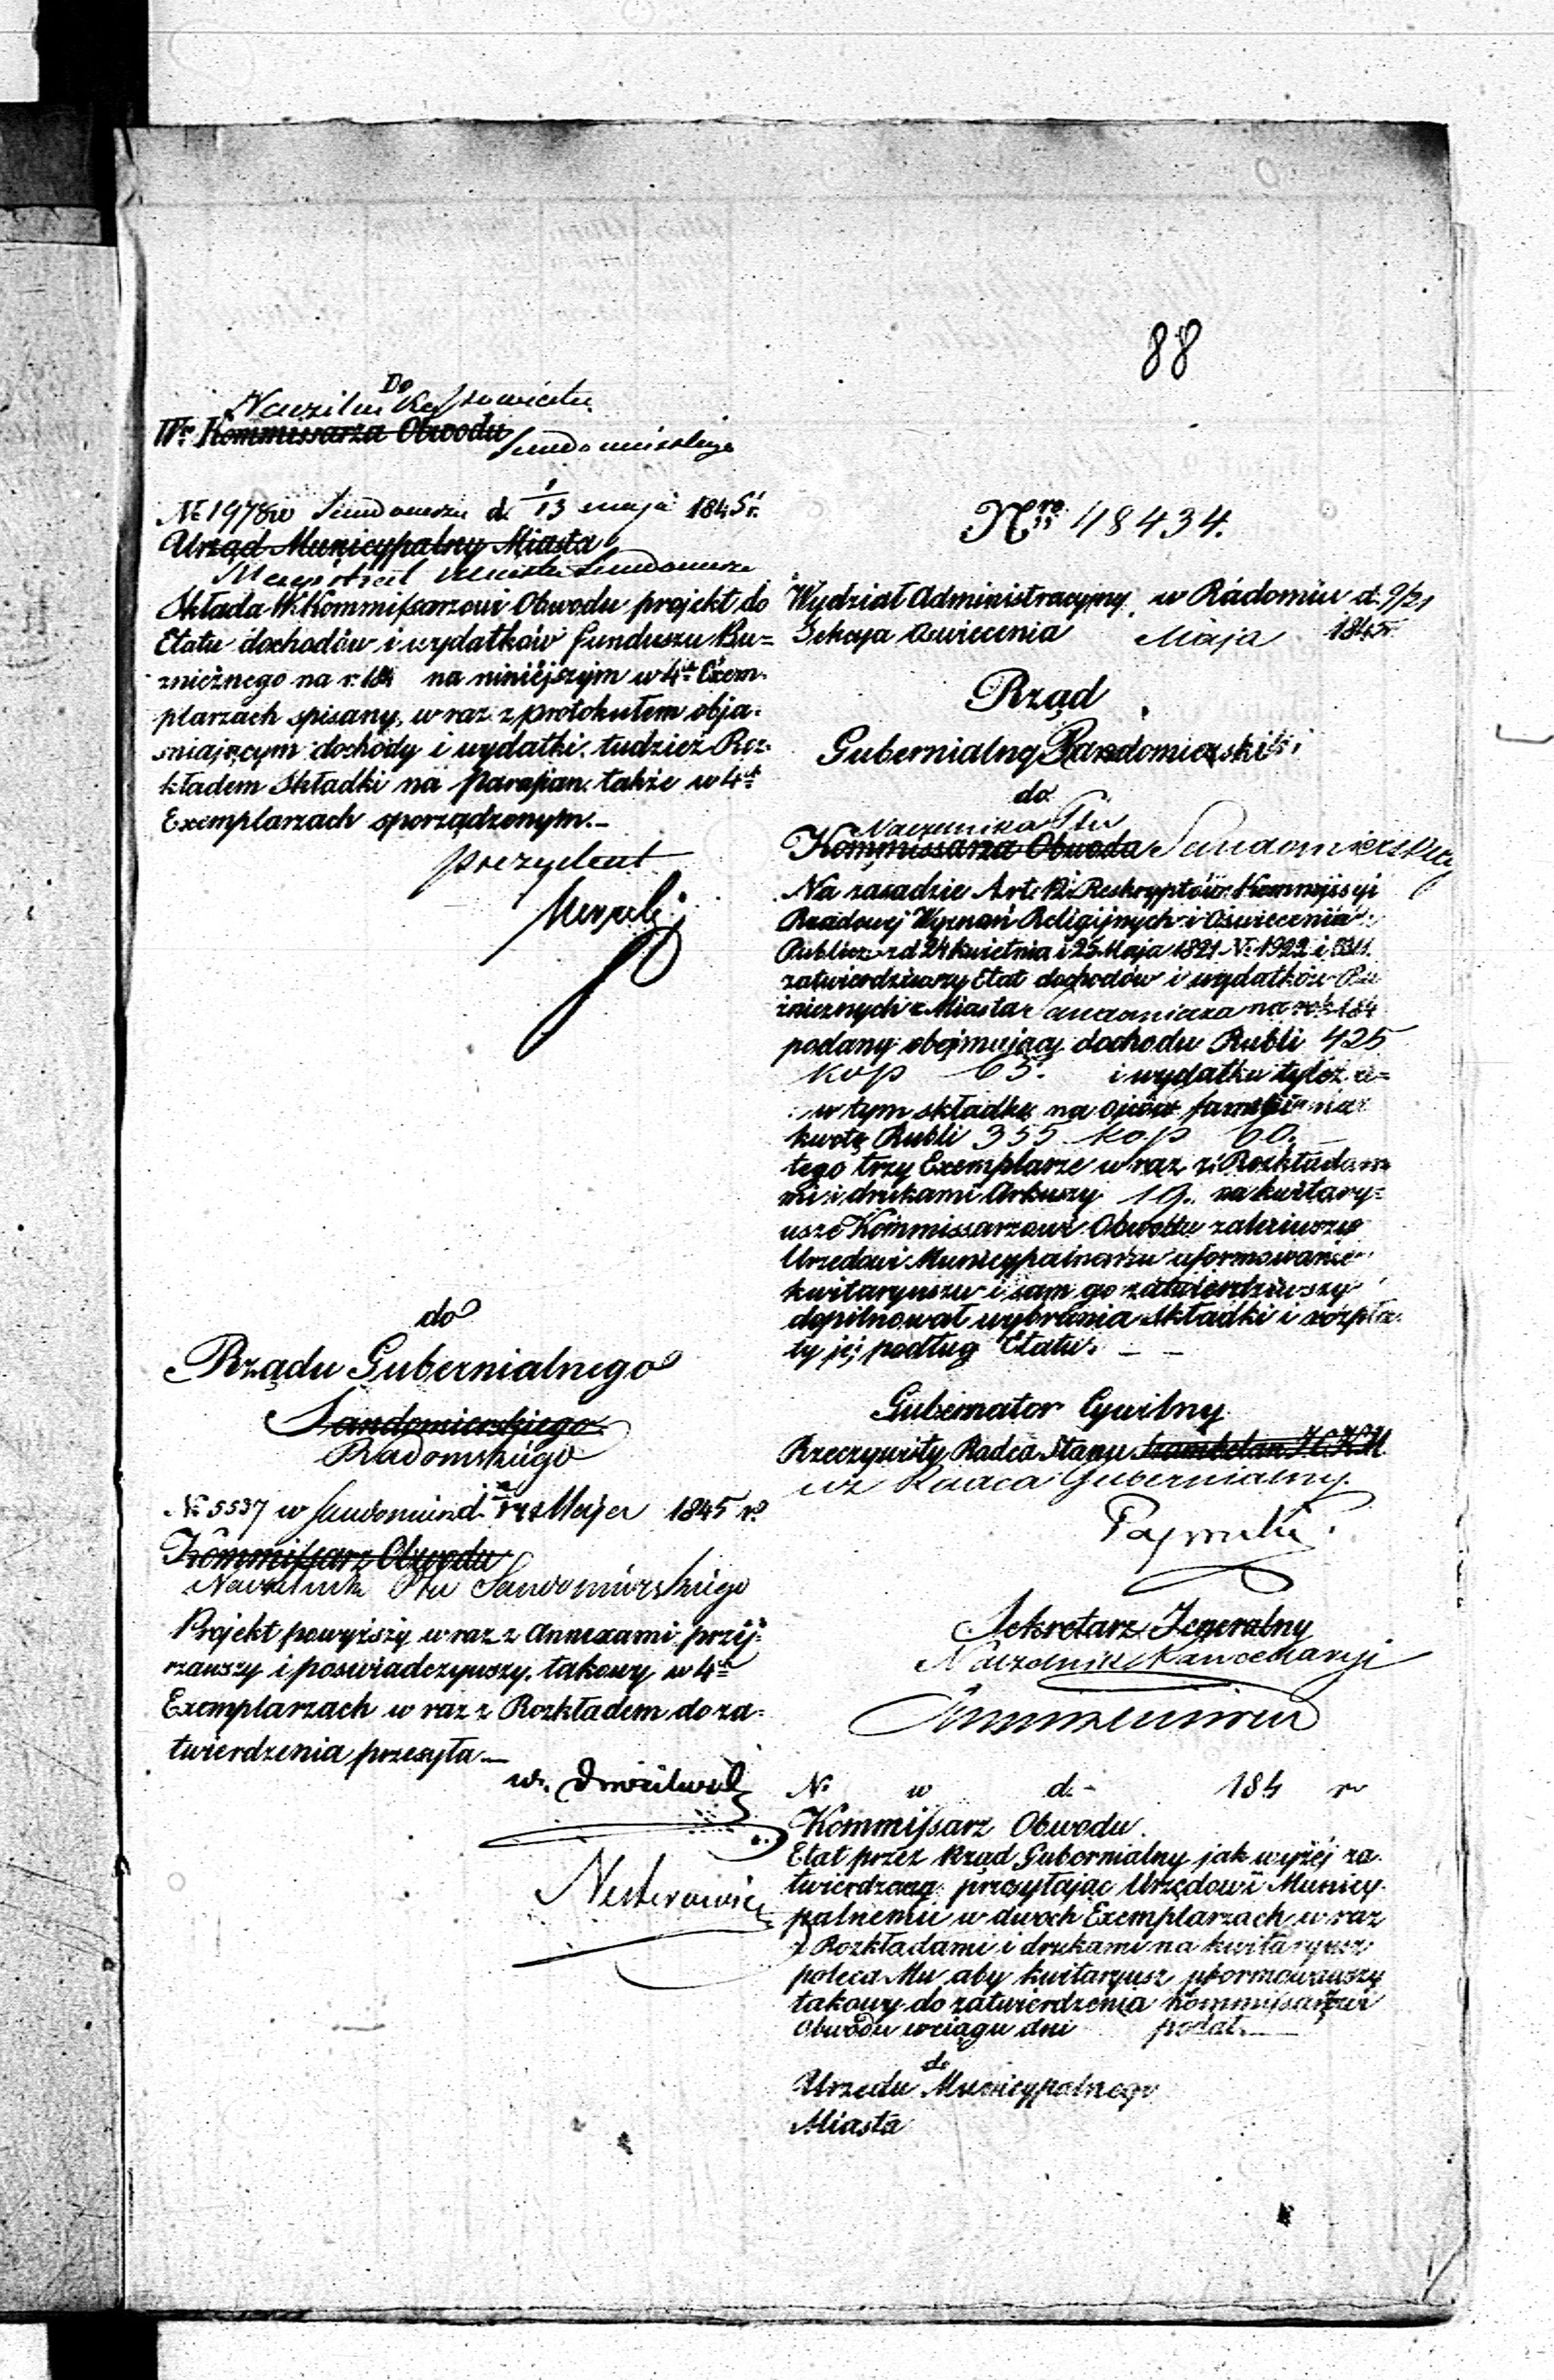 88
Do
Naczelnika Powiatu
Wo Kommissarza Obwodu Sandomierskiego
№ 1978 w Sandomierzu d. 1/13 maja 1845 r.
Urząd Municypalny Miasta
Magistrat Miasta Sandomierza
Składa W. Kommissarzowi Obwodu projekt do
Etatu dochodów i wydatków funduszu Bu=
znicznego na r. 184 na niniéjszym w 4ch Exem-
plarzach spisany, wraz z protokułem obja-
sniającym dochody i wydatki, tudzież Roz-
kładem Składki na Parafian, także w 4ch
Exemplarzach sporządzonym.–
prezydent
do
Rządu Gubernialnego
Sandomierskiego
Radomskiego
№ 5537 w Sandomierzu d. Maja 1845 r.
Kommissarz Obwodu
Naczelnik Ptu Sandomierskiego
Projekt powyższy wraz z Annexami przéj-
rzawszy i poswiadczywszy, takowy w 4ch
Exemplarzach wraz z Rozkładem do za-
twierdzenia przesyła.—
Nesterowicz
Nro 48434.
Wydział Administracyjny w Radomiu d. 9/21
Sekcya Oswiecenia Maja 1845 r.
Rząd
Gubernialny Radomski
do
Naczelnika Ptu
Kommissarza Obwodu Sandomierskiego
Na zasadzie Art. 12 Reskryptów Kommissyi
Rządowej Wyznań Religijnych i Oswiecenia
Publicz. z d 24 Kwietnia i 25 Maja 1821 № 1922 i
zatwierdziwszy Etat dochodów i wydatków Bu
żnicznych z Miasta Sandomierza na rok 184
podany obejmujący dochodu Rubli 425
kop 65. i wydatku tyleż a=
w tym składkę na Ojców familii na
kwotę Rubli 355 kop 60.
tego trzy Exemplarze wraz z Rozkłada
mi i drukami Arkuszy 19. na kwitary=
usze Kommissarzowi Obwodu
Urzędowi Municypalnemu uformowanie
kwitaryuszu i sam go zatwierdziwszy
dopilnował wybrania składki i rozpła-
ty jéj podług Etatu. – –
Gubernator Cywilny
Rzeczywisty Radca Stanu Szambelan J. C. K. M.
wz Radca Gubernialny.
Sekretarz Jeneralny
Naczelnik Kancellaryi
№ w d. 184 r.
Kommissarz Obwodu.
Etat przez Rząd Gubernialny jak wyżéj za-
twierdzony przesyłając Urzędowi Municy-
palnemu w dwoch Exemplarzach wraz
z Rozkładami i drukami na kwitaryusz
poleca Mu aby kwitaryusz uformowawszy
takowy do zatwierdzenia Kommissarzowi
Obwodu wciągu dni podał.—
do
Urzędu Municypalnego
Miasta